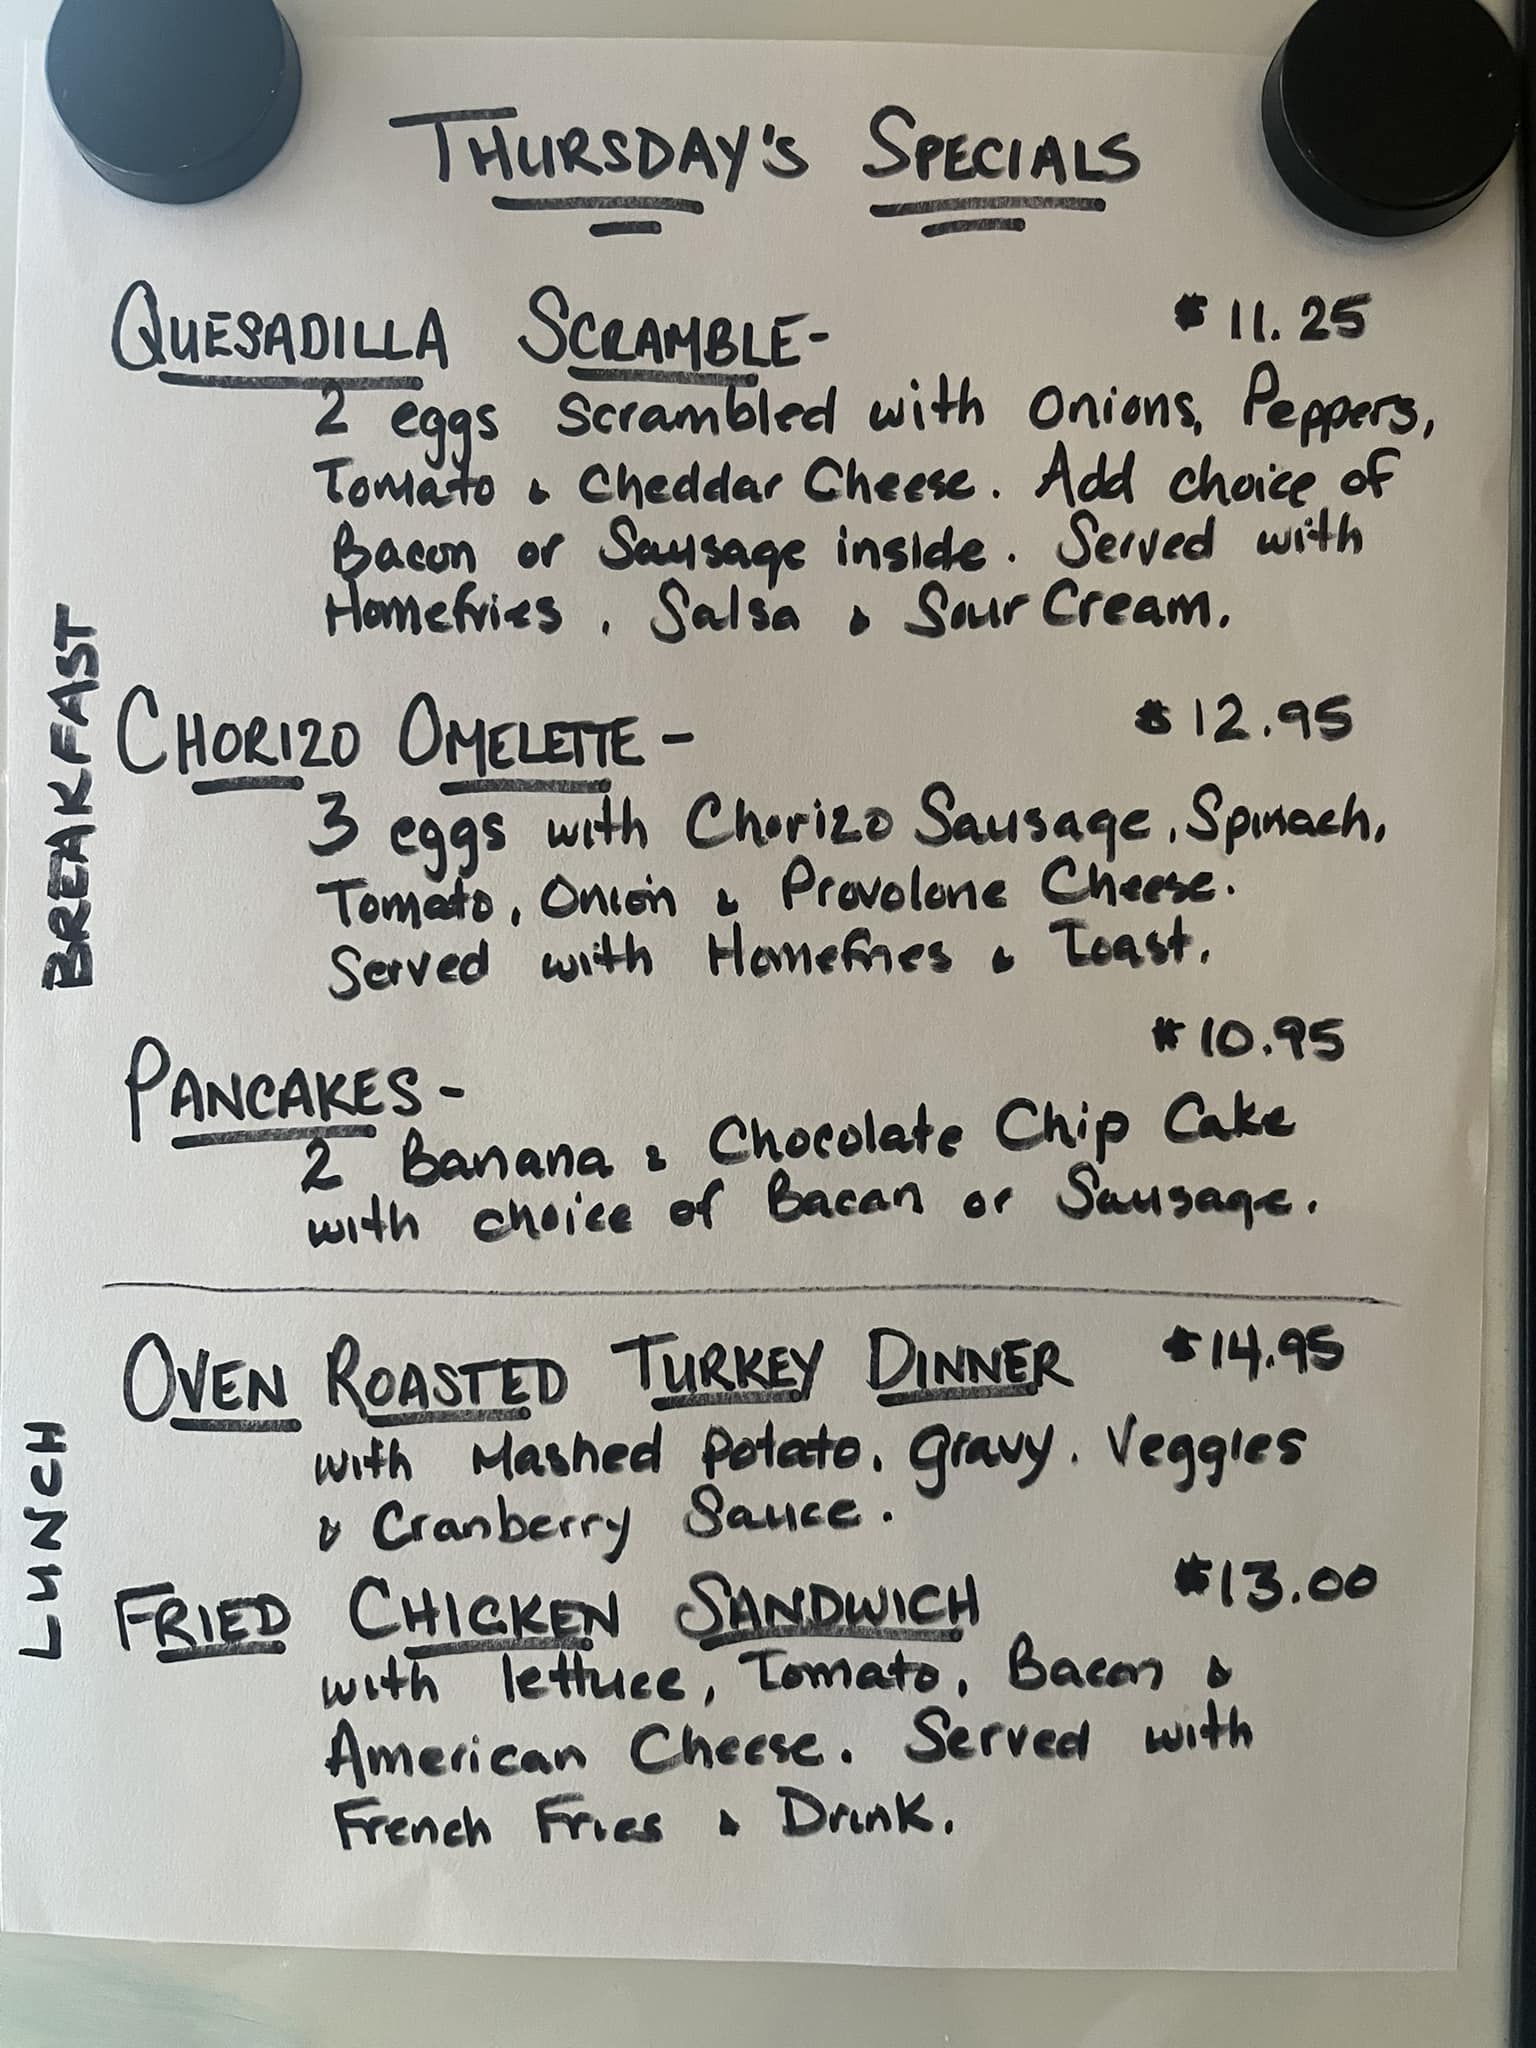 THURSDAY'S SPECIALS
BREAKFAST
QUESADILLA SCRAMBLE- $11.25
2 eggs scrambled with onions, Peppers,
Tomato & Cheddar Cheese. Add choice of
Bacon or Sausage inside. Served with
Homefries, Salsa & Sour Cream.
CHORIZO OMELETTE- $12.95
3 eggs with Chorizo Sausage, Spinach,
Tomato, Onion & Provolone Cheese.
Served with Homefries & Toast.
PANCAKES- $10.95
2 Banana & Chocolate Chip Cake
with choice of Bacon or Sausage.
LUNCH
OVEN ROASTED TURKEY DINNER $14.95
with Mashed Potato, gravy, Veggies
& Cranberry Sauce.
FRIED CHICKEN SANDWICH $13.00
with lettuce, Tomato, Bacon &
American Cheese. Served with
French Fries & Drink.